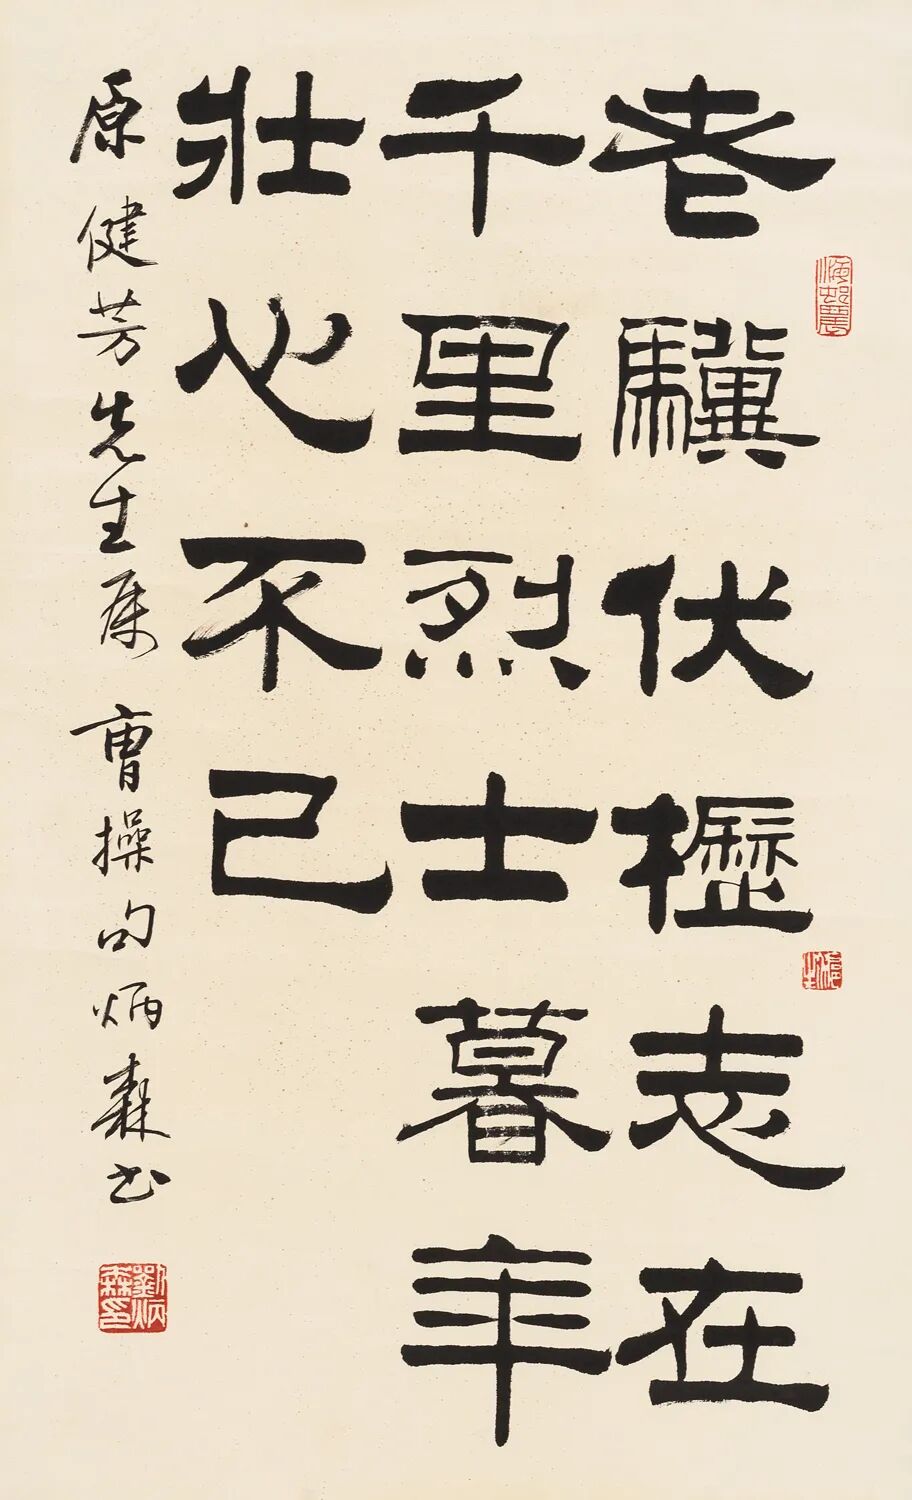 老驥伏櫪志在
千里烈士暮年
壯心不已
原健芳先生属 曹操句 炳森书
劉炳森印